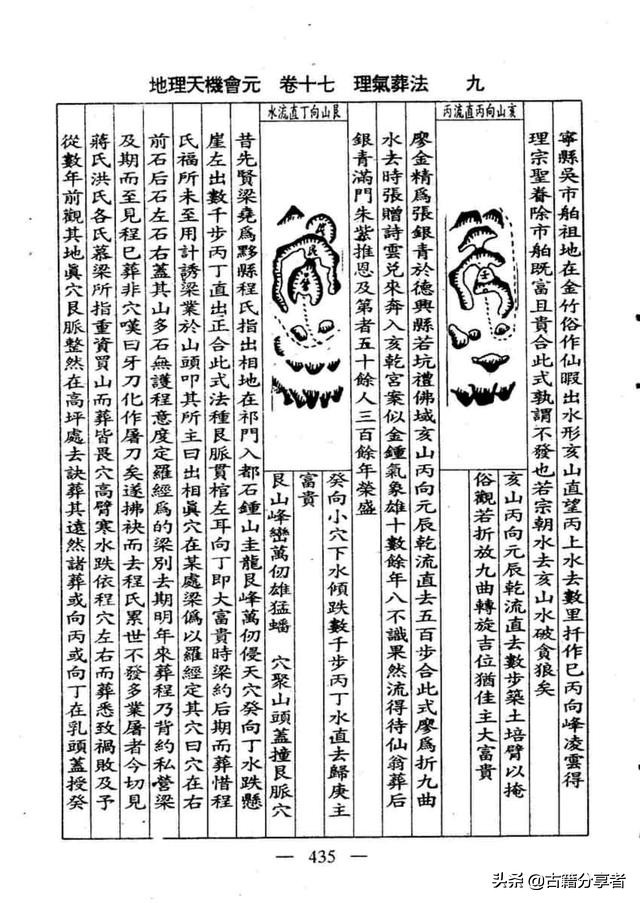 地理天機會元　卷十七　理氣葬法　九
寧縣吳市舶祖地在金竹俗作仙暇出水形亥山直望丙上水去數里扦作巳丙向峰凌雲得
理宗聖眷除市舶既富且貴合此式孰謂不發也若宗朝水去亥山水破貪狼矣
亥山丙向丙直流丙
亥山丙向元辰乾流直去數步築土培臂以掩
俗觀若折放九曲轉旋吉位猶佳主大富貴
廖金精為張銀青於德興縣若坑禮佛域亥山丙向元辰乾流直去五百步合此式廖為折九曲
水去時張贈詩雲兌來奔入亥乾宮案似金鍾氣象雄十數餘年八不識果然流得待仙翁葬后
銀青滿門朱紫推恩及第者五十餘人三百餘年榮盛
艮山丁向丁直流水
癸向小穴下水傾跌數千步丙丁水直去歸庚主
富貴
艮山峰巒萬仞雄猛蟠　穴聚山頭蓋撞艮脈穴
昔先賢梁堯為黟縣程氏指出相地在祁門入都石鍾山圭龍艮峰萬仞侵天穴癸向丁水跌懸
崖左出數千步丙丁直出正合此式法種艮脈貫棺左耳向丁即大富貴時梁約后期而葬惜程
氏福所未至用計誘梁業於山頭叩其所主曰出相真穴在某處梁偽以羅經定其穴曰穴在右
前石后石左石右蓋其山多石無護程意度定羅經為的梁別去期明年來葬程乃背約私營梁
及期而至見程巳葬非穴嘆曰牙刀化作屠刀矣遂拂袂而去程氏累世不發多業屠者今切見
蔣氏洪氏各氏慕梁所指重資買山而葬皆畏穴高臂寒水跌依程穴左右而葬悉致禍敗及予
從數年前觀其地真穴艮脈整然在高坪處去訣葬其遠然諸葬或向丙或向丁在乳頭蓋授癸
— 435 —
头条 @古籍分享者